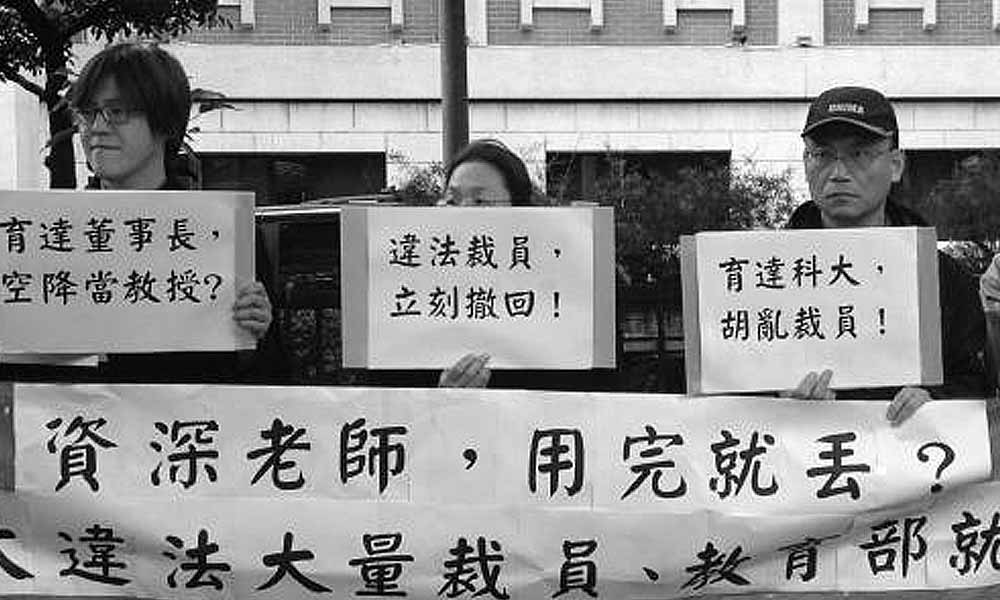 育達董事長，
空降當教授?
違法裁員，
立刻撤回！
育達科大，
胡亂裁員！
資深老師，用完就丟？
大違法大量裁員、教育部就